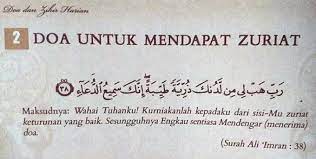 Doa dan Zikir Harian
2 DOA UNTUK MENDAPAT ZURIAT
رَبِّ هَبْ لِي مِن لَّدُنكَ ذُرِّيَّةً طَيِّبَةً ۖ إِنَّكَ سَمِيعُ الدُّعَاءِ ﴿٣٨﴾
Maksudnya: Wahai Tuhanku! Kurniakanlah kepadaku dari sisi-Mu zuriat
keturunan yang baik. Sesungguhnya Engkau sentiasa Mendengar (menerima)
doa.
(Surah Ali 'Imran : 38)